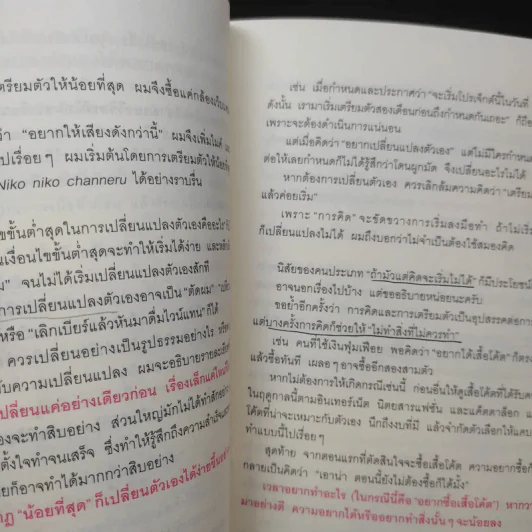 ตรียมตัวให้น้อยที่สุด ผมจึงซื้อแค่กล้อง
ว่า “อยากให้เสียงดังกว่านี้” ผมจึงเพิ่มไมค์
ปเรื่อยๆ ผมเริ่มต้นโดยการเตรียมตัวให้น้อย
Niko niko channeru ได้อย่างราบรื่น
ขขั้นต่ำสุดในการเปลี่ยนแปลงตัวเองคืออะไร
งื่อนไขขั้นต่ำสุดจะทำให้เริ่มได้ง่าย
จนไม่ได้เริ่มเปลี่ยนแปลงตัวเองสักที
การเปลี่ยนแปลงตัวเองอาจเป็น “ตัดผม”
หรือ “เลิกเบียร์แล้วหันมาดื่มไวน์แทน” ก็ได้
ควรเปลี่ยนอย่างเป็นรูปธรรมอย่างไร
กับความเปลี่ยนแปลง ผมจะอธิบายรายละเอียด
ปลี่ยนแค่อย่างเดียวก่อน เรื่องเล็กแค่ไหน
องจะทำสิบอย่าง ส่วนใหญ่มักไม่ได้ทำสักอย่าง
ตั้งใจทำจนเสร็จ ซึ่งทำให้รู้สึกถึงความสำเร็จ
ยก็อาจทำได้มากกว่าสิบอย่าง
“น้อยที่สุด” ก็เปลี่ยนตัวเองได้ง่ายขึ้น
เช่น เมื่อกำหนดและประกาศว่า “จะเริ่มโปรเจ็กต์นี้ในวันที่
ดังนั้น เรามาเริ่มเตรียมตัวสองเดือนก่อนถึงกำหนดกันเถอะ” ก็
เพราะจะต้องดำเนินการแน่นอน
แต่เมื่อคิดว่า “อยากเปลี่ยนแปลงตัวเอง” แต่ไม่มีใครกำหนด
ต่อให้เลยกำหนดก็ไม่ได้รู้สึกว่าโดนผูกมัด จึงเปลี่ยนอะไรไม่ได้
หากต้องการเปลี่ยนตัวเอง ควรเลิกล้มความคิดว่า “เตรียม
แล้วค่อยเริ่ม”
เพราะ “การคิด” จะขัดขวางการเริ่มลงมือทำ ถ้าไม่เริ่ม
ก็เปลี่ยนแปลงไม่ได้ ผมถึงบอกว่าไม่จำเป็นต้องใช้สมองคิด
นิสัยของคนประเภท “ถ้ามัวแต่คิดจะเริ่มไม่ได้” ก็มีประโยชน์
อาจนอกเรื่องไปบ้าง แต่ขออธิบายหน่อยนะครับ
ขอย้ำอีกครั้งว่า การคิดและการเตรียมตัวเป็นอุปสรรคต่อการ
แต่บางครั้งการคิดก็ช่วยให้ “ไม่ทำสิ่งที่ไม่ควรทำ”
เช่น คนที่ใช้เงินฟุ่มเฟือย พอคิดว่า “อยากได้เสื้อโค้ต” ก็ตรง
แล้วซื้อทันที เผลอๆ อาจซื้ออีกสองสามตัว
หากไม่ต้องการให้เกิดกรณีเช่นนี้ ก่อนอื่นให้ดูเสื้อโค้ตที่ได้รับ
ในฤดูกาลนี้ตามอินเทอร์เน็ต นิตยสารแฟชั่น และแค็ตตาล็อก
โค้ตที่น่าจะเหมาะกับตัวเอง นึกถึงงบที่มี แล้วจำกัดตัวเลือกให้
ทำแบบนี้ไปเรื่อยๆ
สุดท้าย จากตอนแรกที่ตัดสินใจจะซื้อเสื้อโค้ต ความอยากซื้อ
กลายเป็นคิดว่า “เอาน่า ตอนนี้ยังไม่ต้องซื้อก็ได้มั้ง”
เวลาอยากทำอะไร (ในกรณีนี้คือ “อยากซื้อเสื้อโค้ต”)
มาอย่างดี ความอยากได้หรืออยากทำสิ่งนั้นๆ จะน้อยลง